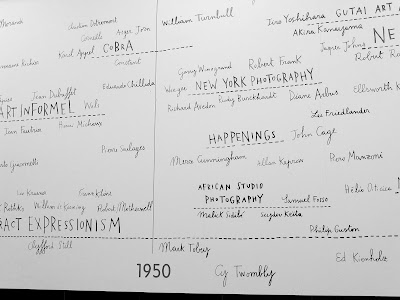 William Turnbull
Jiro Yoshihara GUTAI ART
Christian Dotremont
Akira Kanayama
Corneille Asger Jorn
Karel Appel COBRA
Jasper Johns NE
Constant
Garry Winogrand Robert Frank
Robert
Weegee NEW YORK PHOTOGRAPHY
Jean Dubuffet Eduardo Chillida
Richard Avedon Rudy Burckhardt Diane Arbus Ellsworth K
ART INFORMEL Wols
Lee Friedlander
Jean Fautrier Henri Michaux
HAPPENINGS John Cage
Pierre Soulages
Merce Cunningham Allan Kaprow Piero Manzoni
Alberto Giacometti
AFRICAN STUDIO
Hélio Oiticica
PHOTOGRAPHY Samuel Fosso
Lee Krasner Franz Kline
Malick Sidibé Seydou Keïta
Rothko Willem de Kooning Robert Motherwell
Philip Guston
RACT EXPRESSIONISM
Clyfford Still
Mark Tobey
Ed Kienholz
1950 Cy Twombly